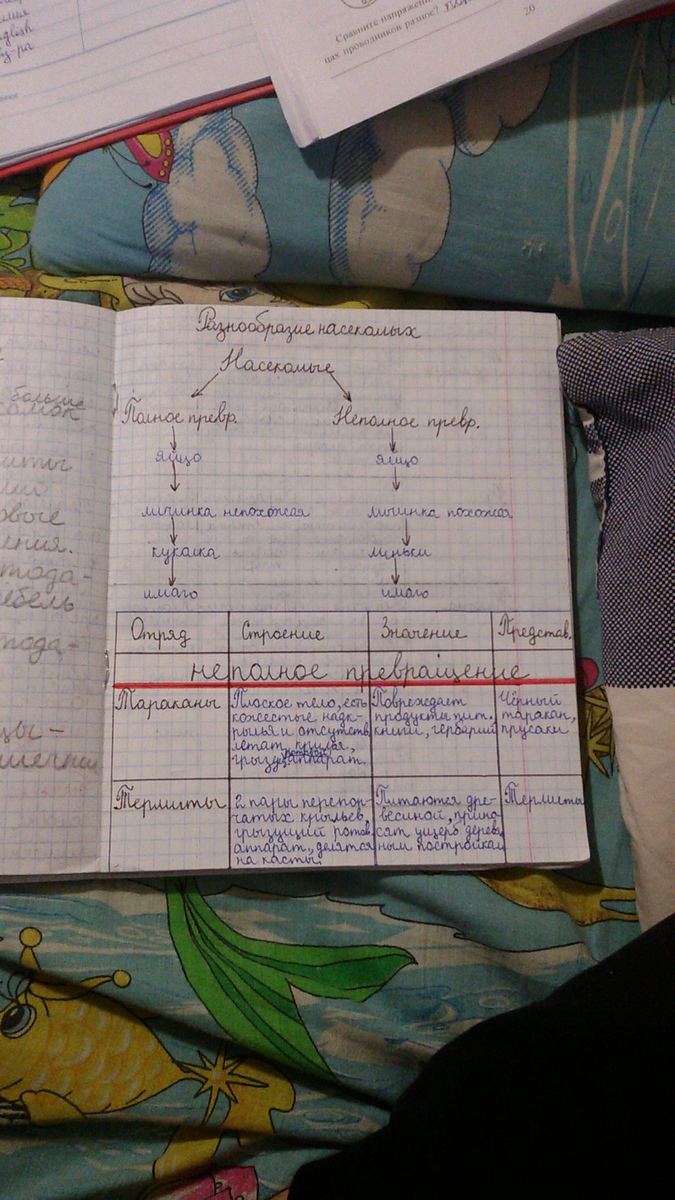 20
Сравните напряжени
цах проводников разное?
больше
самок
ения.
Разнообразие насекомых
Насекомые
Полное превр. Неполное превр.
яйцо яйцо
личинка непохожая личинка похожая
куколка линьки
имаго имаго
Отряд Строение Значение Представ.
неполное превращение
Тараканы
Плоское тело, есть
кожестые надк-
рылья и отсутств.
летат. крылья,
ротовой
грызущ. аппарат.
Повреждает
продукты пит.
книги, гербарий
Чёрный
таракан,
прусаки
Термиты
2 пары перепон-
чатых крыльев,
грызущий ротов.
аппарат, делятся
на касты.
Питаются дре-
весиной, прино-
сят ущерб деревя
ным постройкам
Термиты